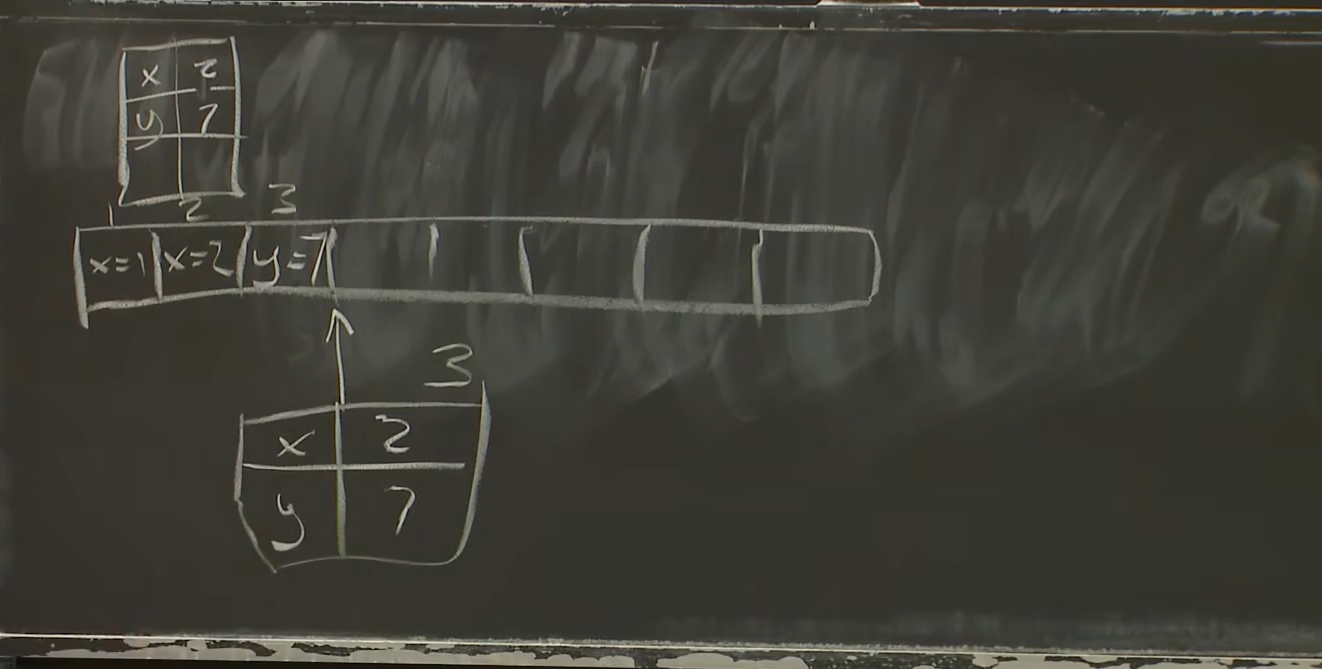 x 2
y 7
1 2 3
x=1 x=2 y=7
3
x 2
y 7